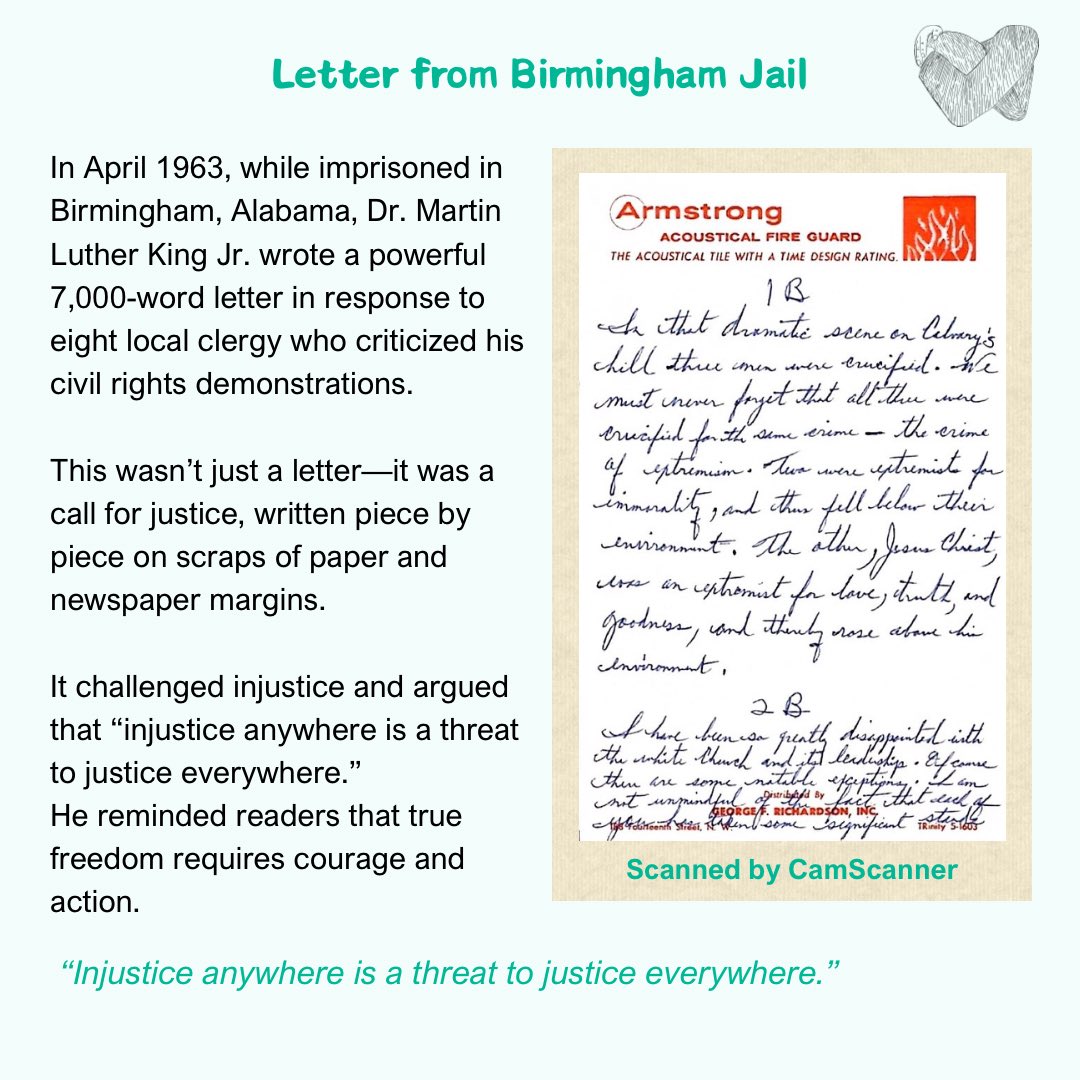 Letter from Birmingham Jail
In April 1963, while imprisoned in
Birmingham, Alabama, Dr. Martin
Luther King Jr. wrote a powerful
7,000-word letter in response to
eight local clergy who criticized his
civil rights demonstrations.
This wasn’t just a letter—it was a
call for justice, written piece by
piece on scraps of paper and
newspaper margins.
It challenged injustice and argued
that “injustice anywhere is a threat
to justice everywhere.”
He reminded readers that true
freedom requires courage and
action.
Armstrong
ACOUSTICAL FIRE GUARD
THE ACOUSTICAL TILE WITH A TIME DESIGN RATING.
1 B
In that dramatic scene on Calvary's
hill three men were crucified. We
must never forget that all three were
crucified for the same crime — the crime
of extremism. Two were extremists for
immorality, and thus fell below their
environment. The other, Jesus Christ,
was an extremist for love, truth, and
goodness, and thereby rose above his
environment.
2 B
I have been so greatly disappointed with
the white Church and its leadership. Of course
there are some notable exceptions. I am
not unmindful of the fact that each of
you has taken some significant stands
Distributed By
GEORGE F. RICHARDSON, INC.
Fourteenth Street, N. W.
TRinity 5-1603
Scanned by CamScanner
“Injustice anywhere is a threat to justice everywhere.”